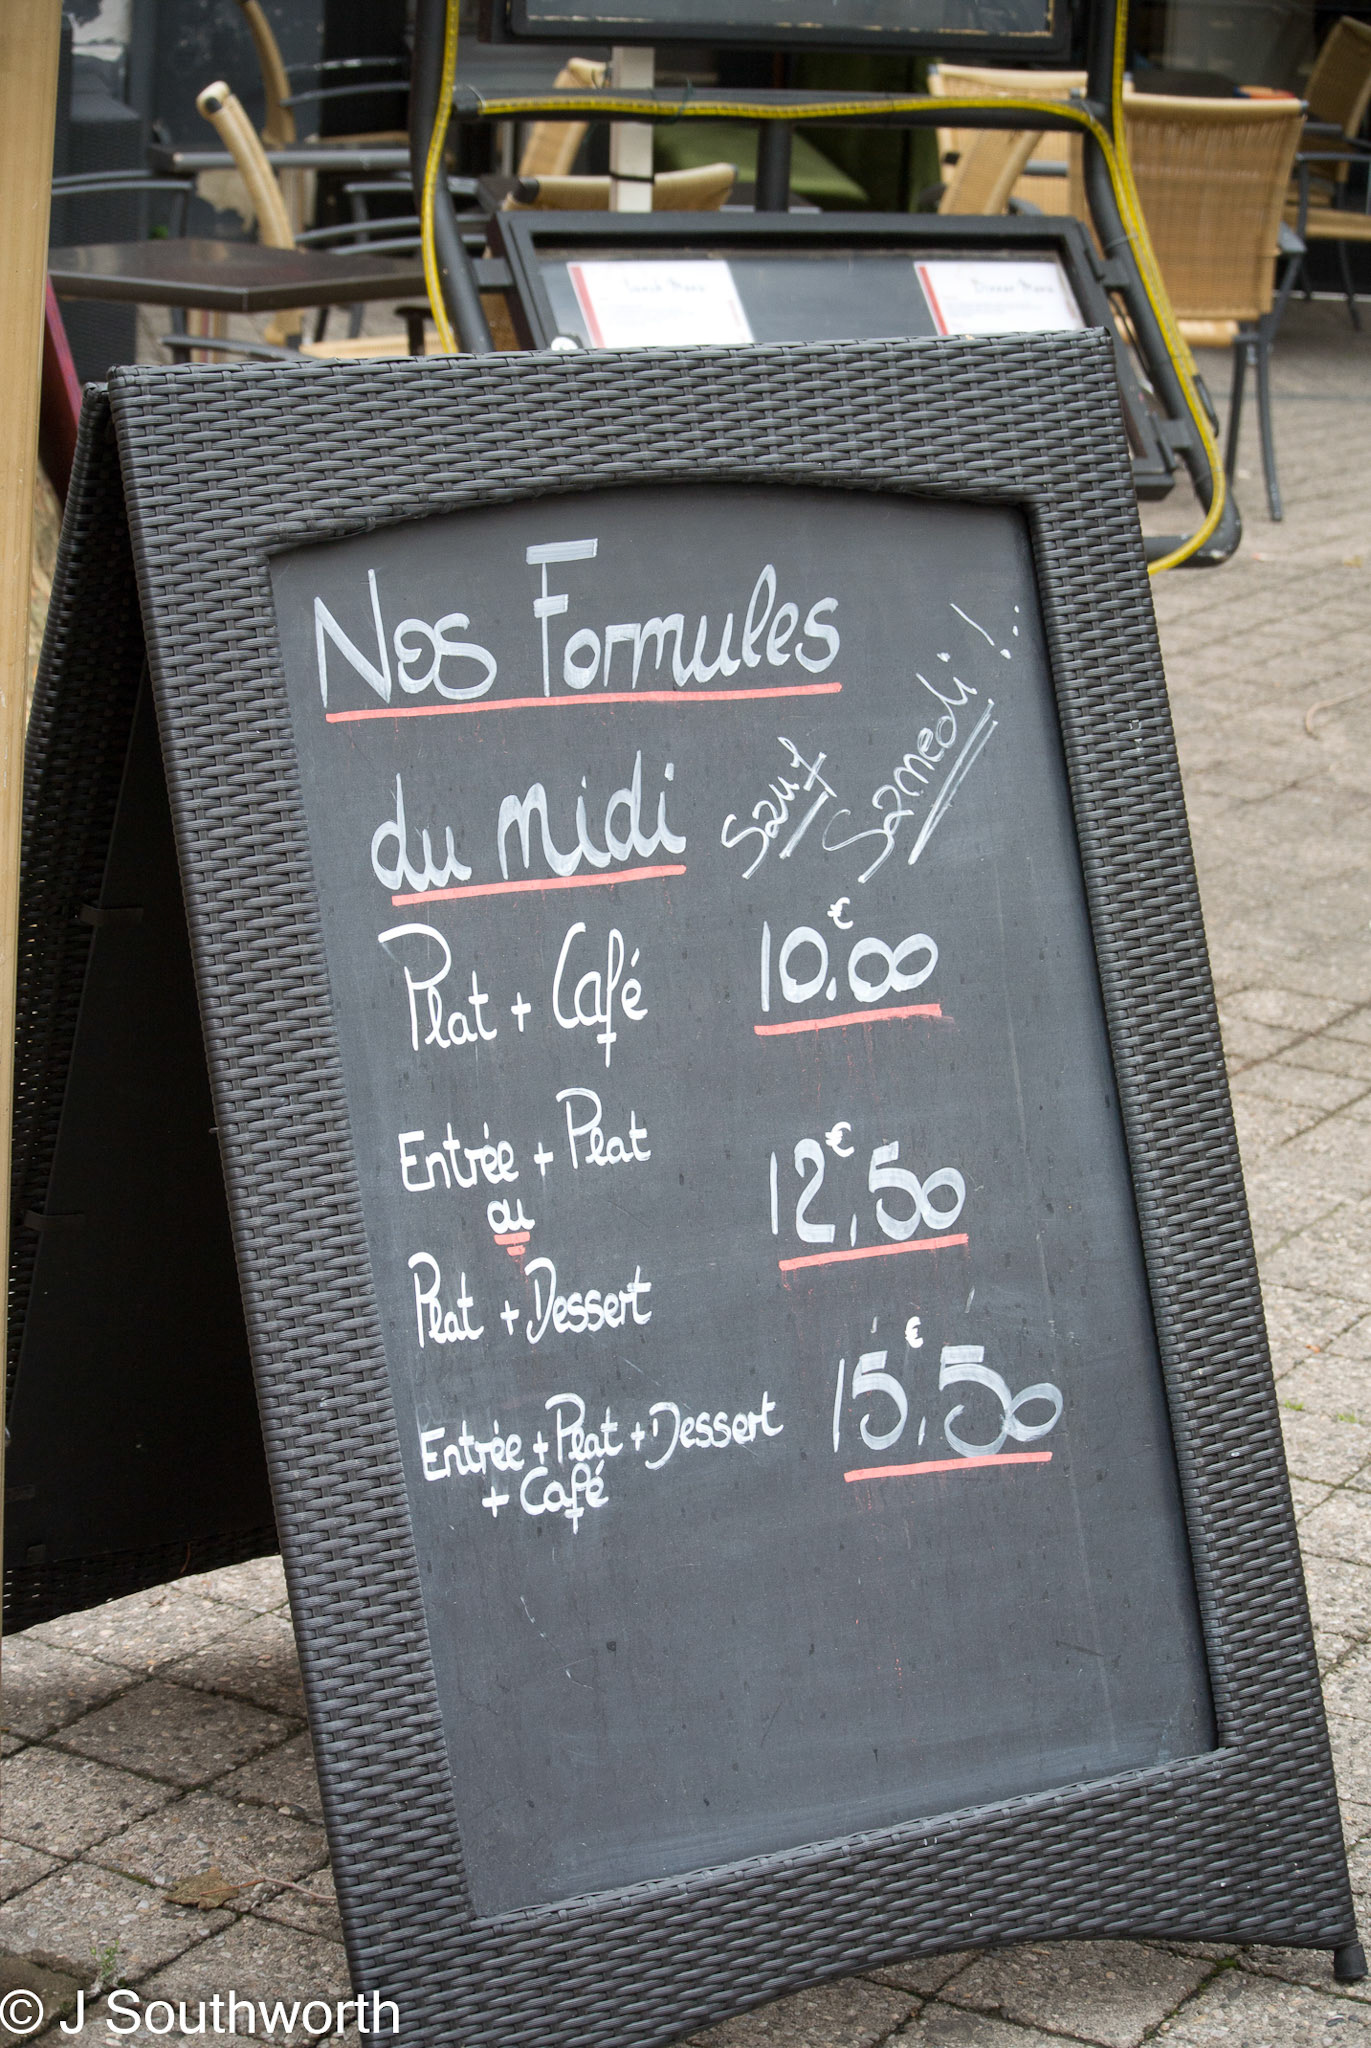 Lunch Menu
Dinner Menu
Nos Formules
du midi
Sauf
Samedi !
Plat + Café 10.€00
Entrée + Plat
ou
12,€50
Plat + Dessert
Entrée + Plat + Dessert 15,€50
+ Café
© J Southworth